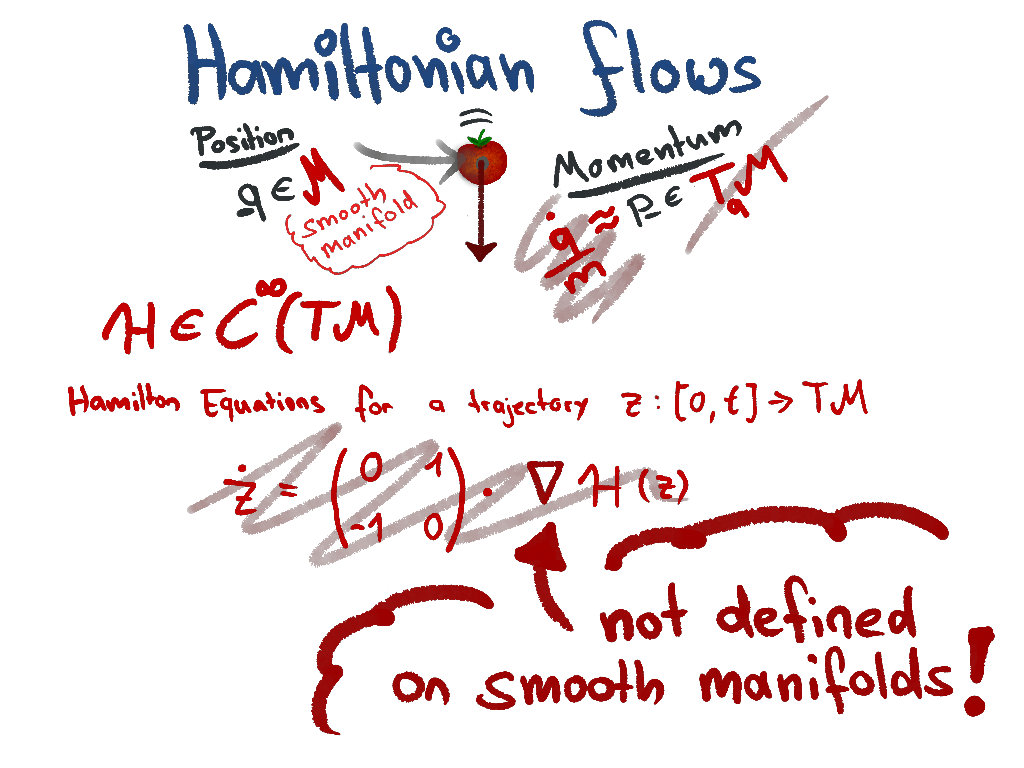 Hamiltonian flows
Position
q ∈ M
smooth
manifold
Momentum
q̇/m ≈ p ∈ T_qM
H ∈ C^∞(TM)
Hamilton Equations for a trajectory z : [0, t] → TM
ż = (0 1
-1 0) · ∇ H (z)
not defined
on smooth manifolds!